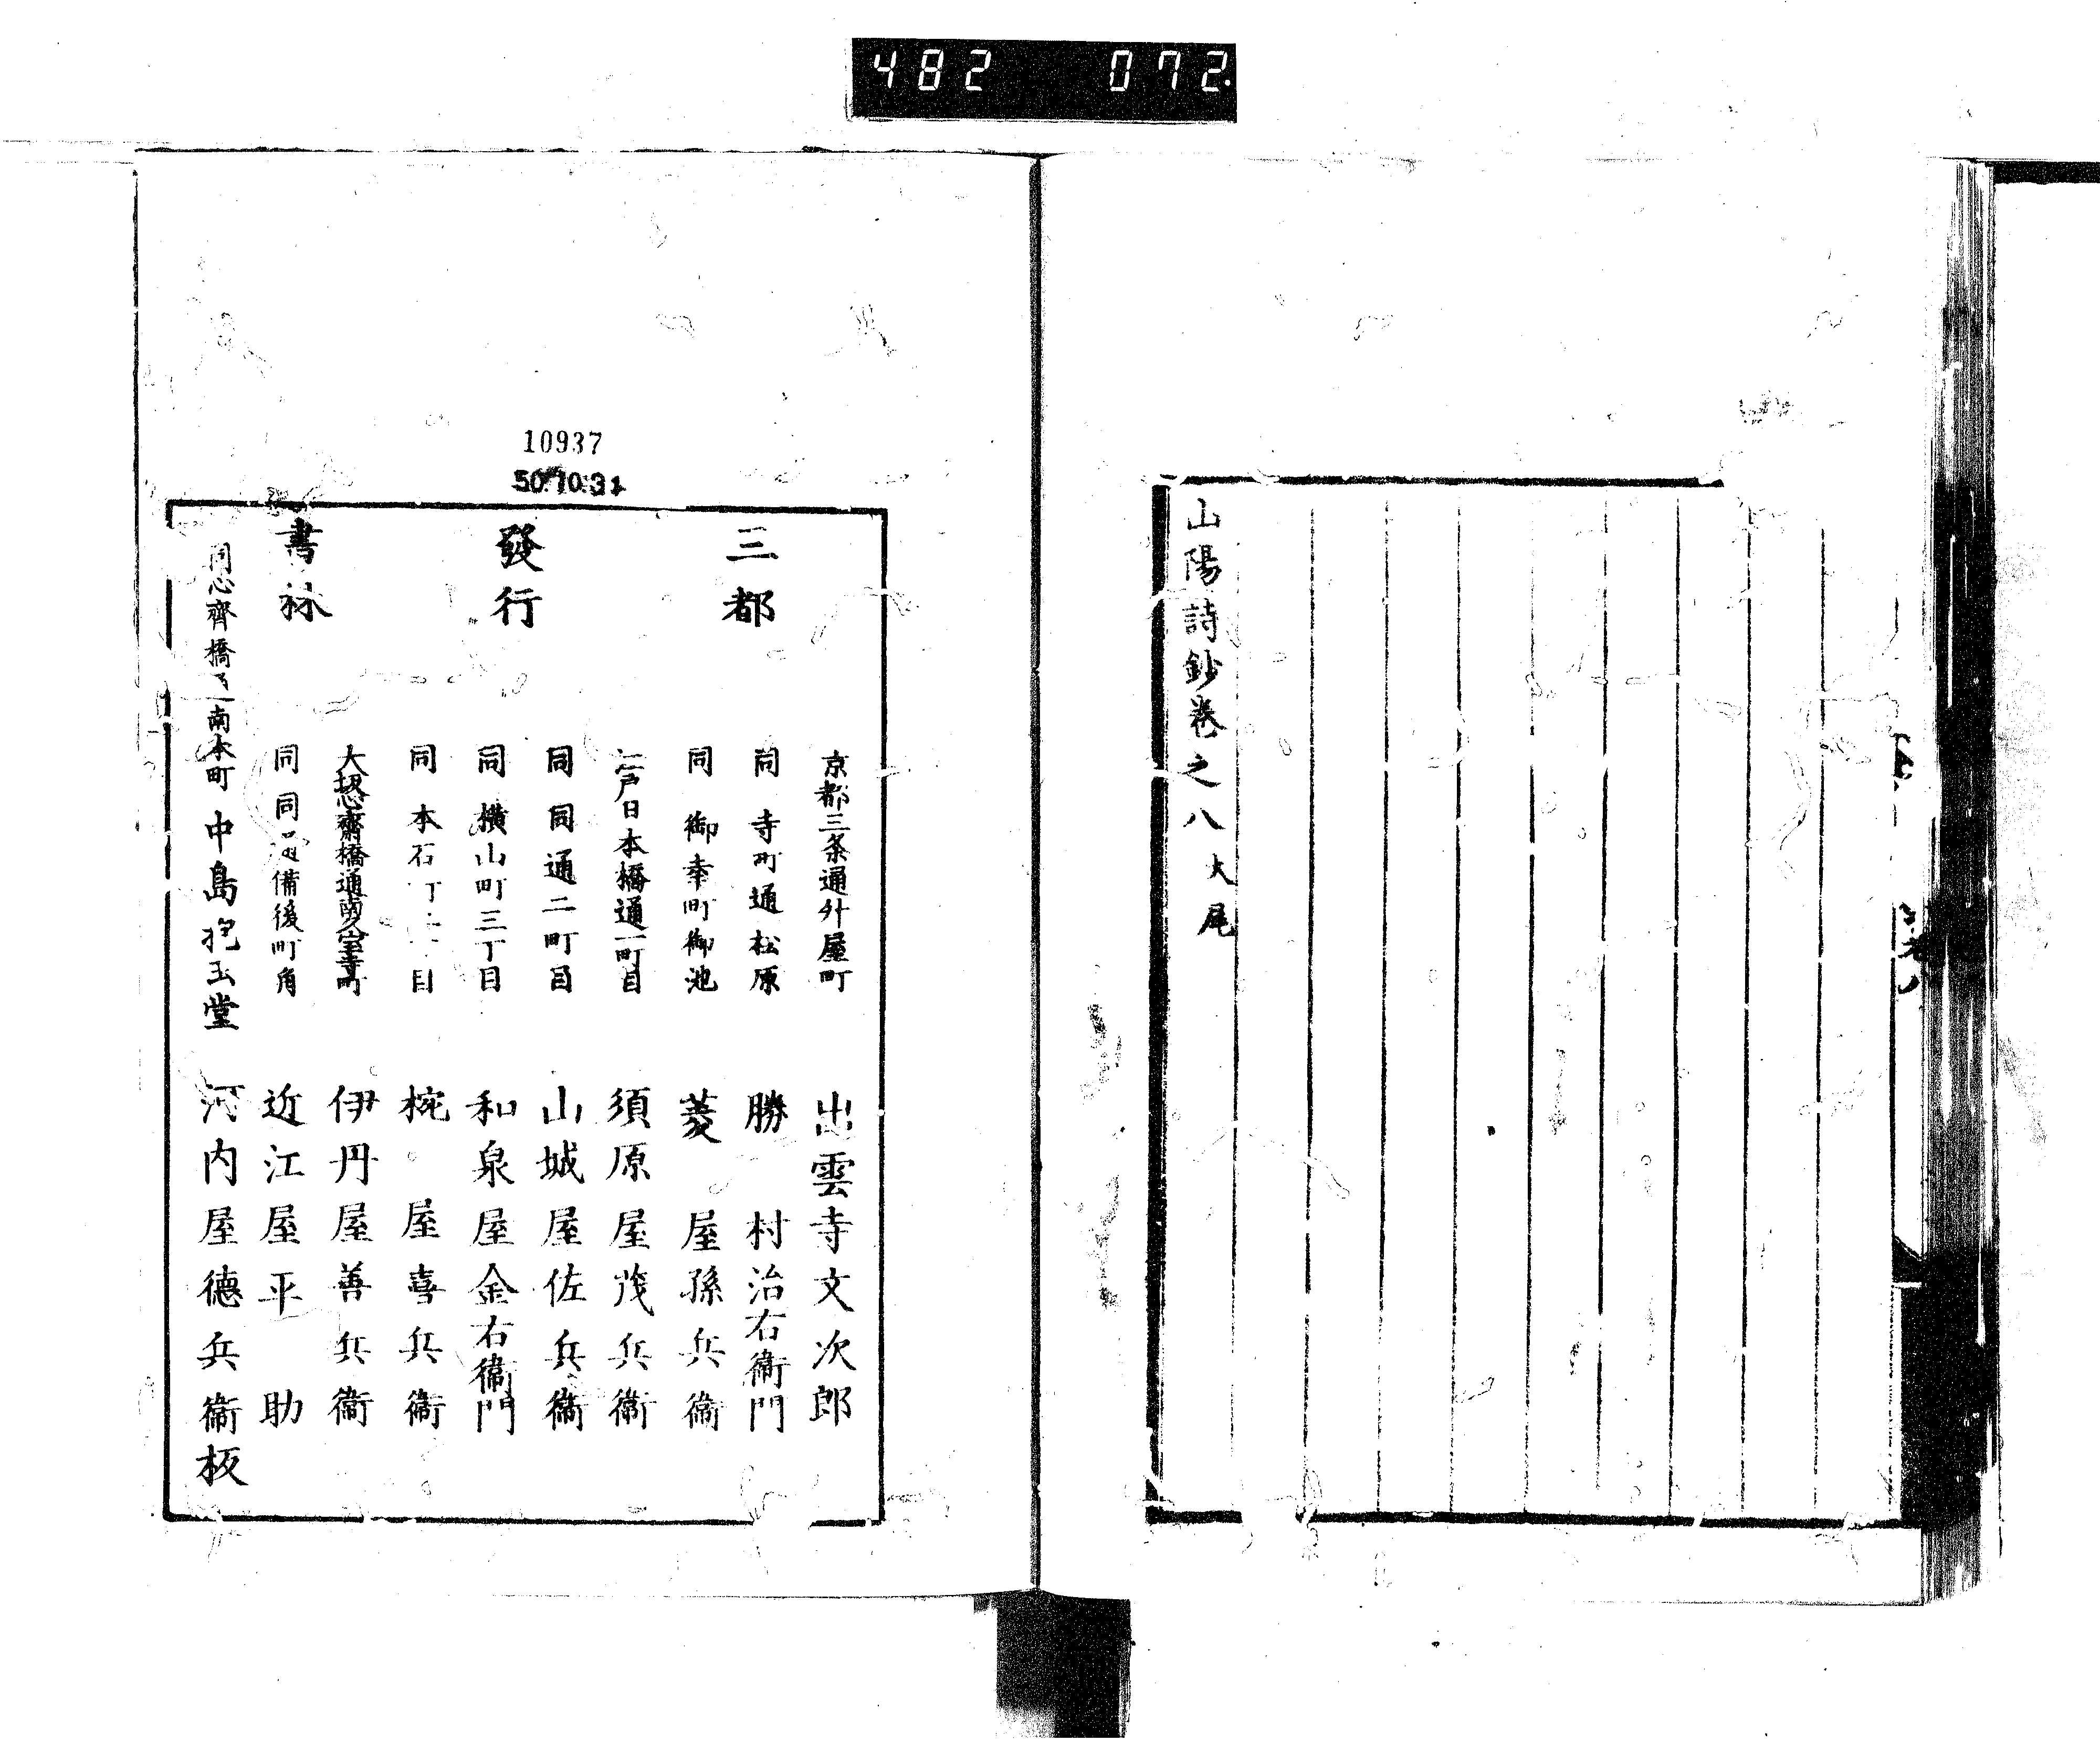 482 072
山陽詩鈔卷之八大尾
10937
50.10.31
三都
發行
書林
京都三条通升屋町 出雲寺文次郎
同 寺町通松原 勝村治右衞門
同 御幸町御池 菱屋孫兵衞
江戸日本橋通一町目 須原屋茂兵衞
同 同通二町目 山城屋佐兵衞
同 横山町三丁目 和泉屋金右衞門
同 本石町 目 椀屋喜兵衞
大坂心齋橋通南久宝寺町 伊丹屋善兵衞
同 同 備後町角 近江屋平助
同心齊橋通南本町 中島抱玉堂 河内屋德兵衞板